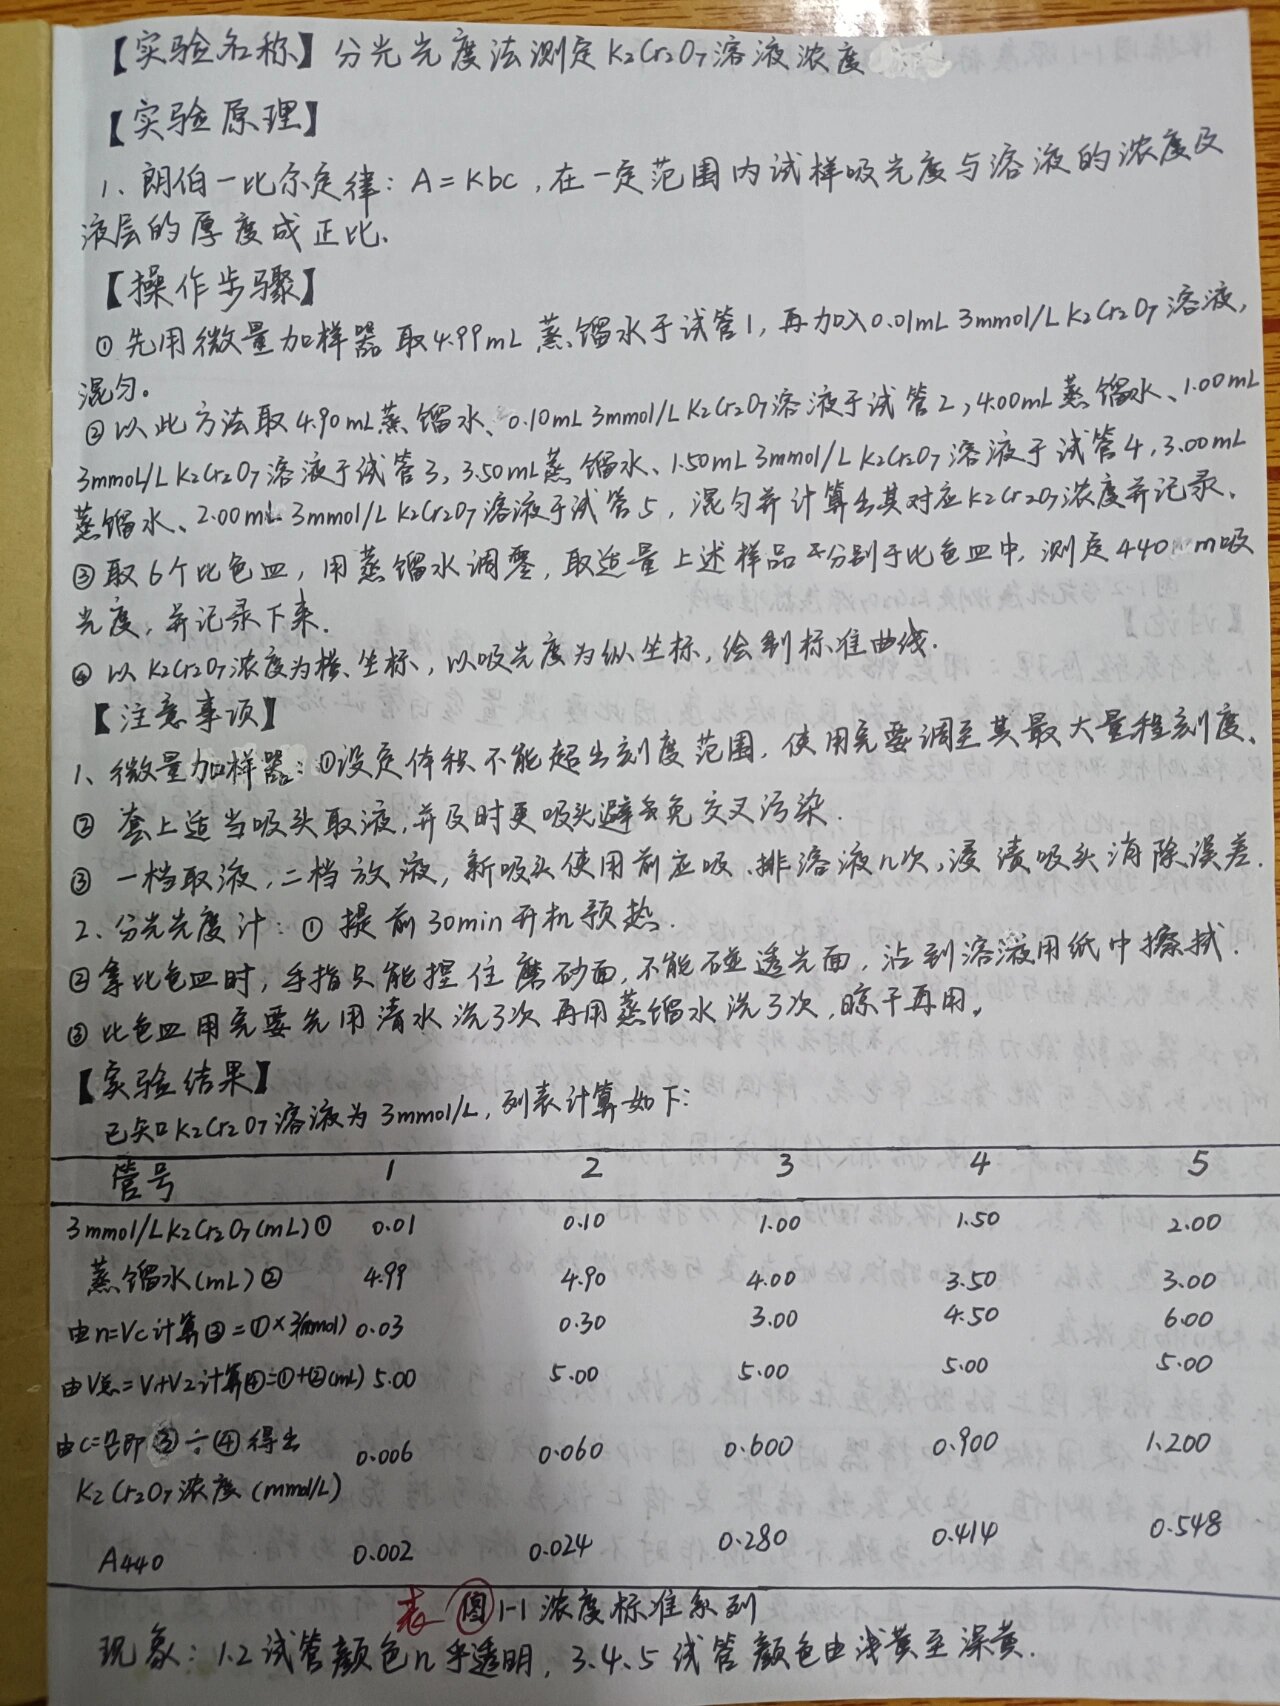 【实验名称】分光光度法测定K2Cr2O7溶液浓度
【实验原理】
1、朗伯一比尔定律：A=Kbc，在一定范围内试样吸光度与溶液的浓度及
液层的厚度成正比、
【操作步骤】
①先用微量加样器取4.99mL蒸馏水于试管1，再加入0.01mL 3mmol/L K2Cr2O7溶液，
混匀。
②以此方法取4.90mL蒸馏水、0.10mL 3mmol/L K2Cr2O7溶液于试管2，4.00mL蒸馏水、1.00mL
3mmol/L K2Cr2O7溶液于试管3，3.50mL蒸馏水、1.50mL 3mmol/L K2Cr2O7溶液于试管4，3.00mL
蒸馏水、2.00mL 3mmol/L K2Cr2O7溶液于试管5，混匀并计算出其对应K2Cr2O7浓度并记录、
③取6个比色皿，用蒸馏水调零，取适量上述样品分别于比色皿中，测定440 m吸
光度，并记录下来.
④以K2Cr2O7浓度为横坐标，以吸光度为纵坐标，绘制标准曲线.
【注意事项】
1、微量加样器：①设定体积不能超出刻度范围，使用完要调至其最大量程刻度、
②套上适当吸头取液，并及时更吸头避免交叉污染.
③一档取液，二档放液，新吸头使用前应吸、排溶液几次，浸渍吸头消除误差.
2、分光光度计：①提前30min开机预热.
②拿比色皿时，手指只能捏住磨砂面，不能碰透光面，沾到溶液用纸巾擦拭.
③比色皿用完要先用清水洗3次再用蒸馏水洗3次，晾干再用。
【实验结果】
已知K2Cr2O7溶液为3mmol/L，列表计算如下：
管号 1 2 3 4 5
3mmol/L K2Cr2O7(mL)① 0.01 0.10 1.00 1.50 2.00
蒸馏水(mL)② 4.99 4.90 4.00 3.50 3.00
由n=Vc计算③=①×3(mmol) 0.03 0.30 3.00 4.50 6.00
由V总=V1+V2计算④=①+②(mL) 5.00 5.00 5.00 5.00 5.00
由c=即③÷④得出 0.006 0.060 0.600 0.900 1.200
K2Cr2O7浓度(mmol/L)
A440 0.002 0.024 0.280 0.414 0.548
表 图1-1浓度标准系列
现象：1.2试管颜色几乎透明，3.4.5试管颜色由浅黄至深黄.